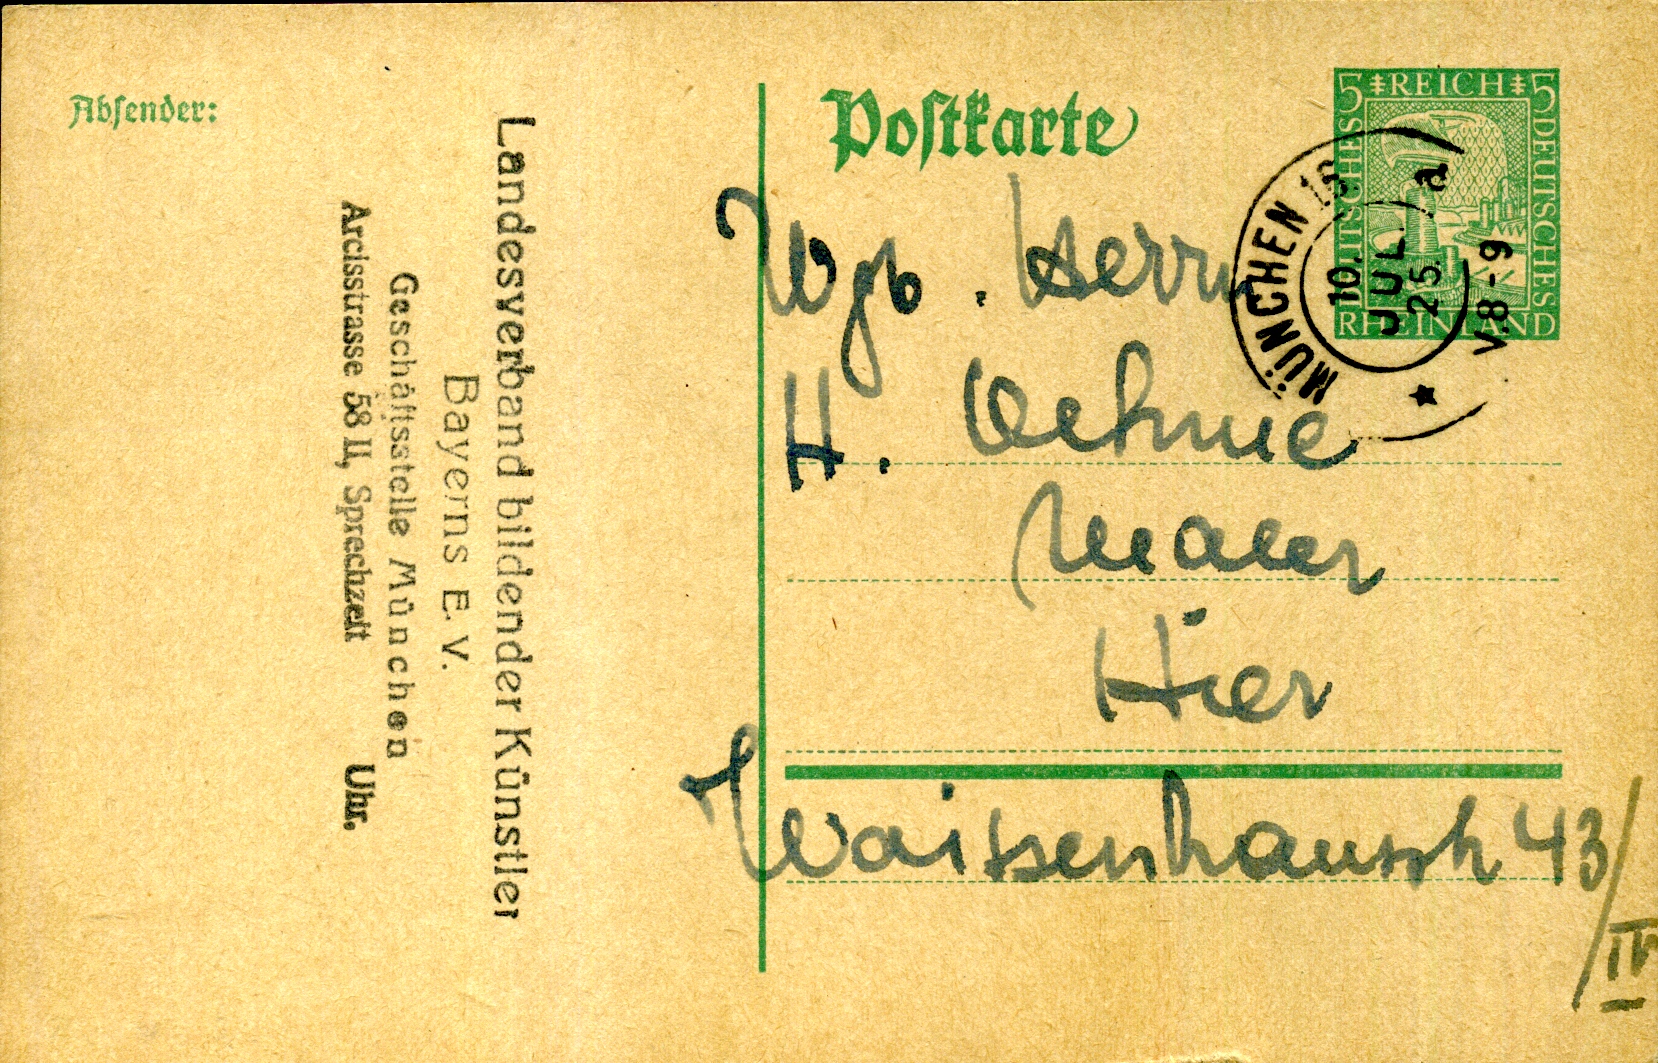 Absender:
Landesverband bildender Künstler
Bayerns E. V.
Geschäftsstelle München
Arcisstrasse 58 II, Sprechzeit Uhr.
Postkarte
5 REICH 5
DEUTSCHES
DEUTSCHES
RHEINLAND
MÜNCHEN
a
10.
JUL
25.
V.8-9
Wgb. Herrn
H. Oehme
Maler
Hier
Waisenhausstr 43/
IV